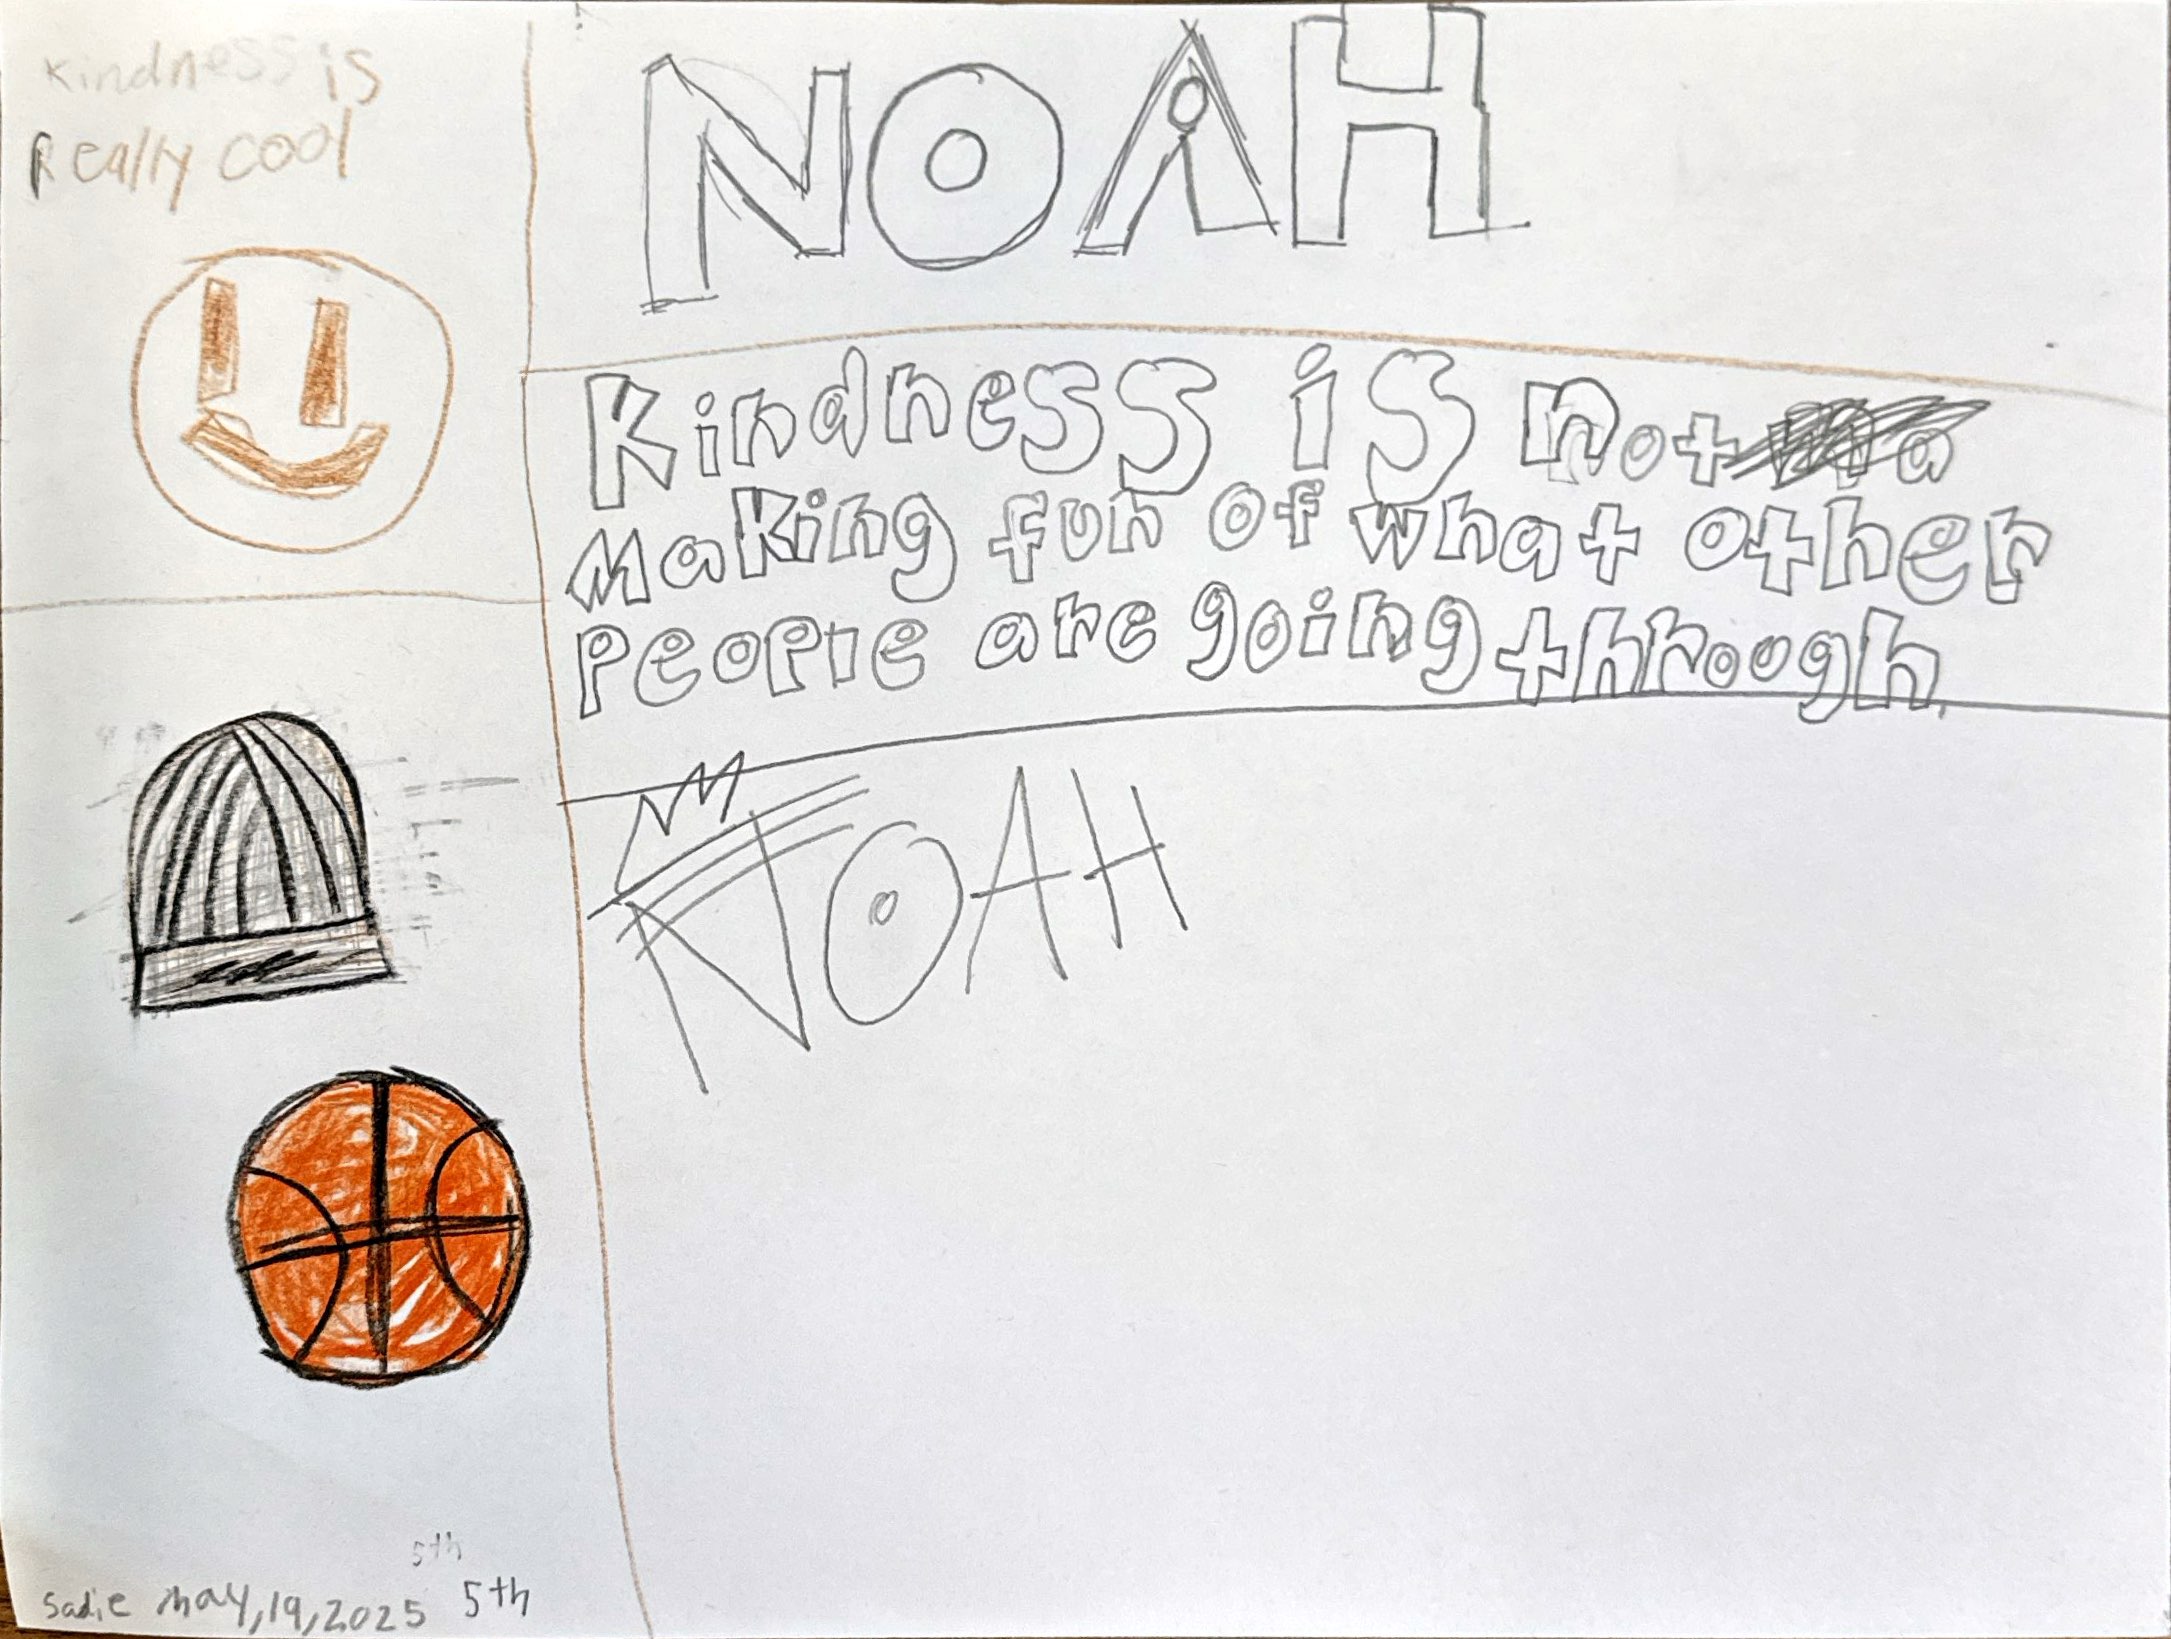 Kindness is
Really cool
NOAH
Kindness is not
making fun of what other
people are going through.
NOAH
5th
Sadie may,19,2025 5th